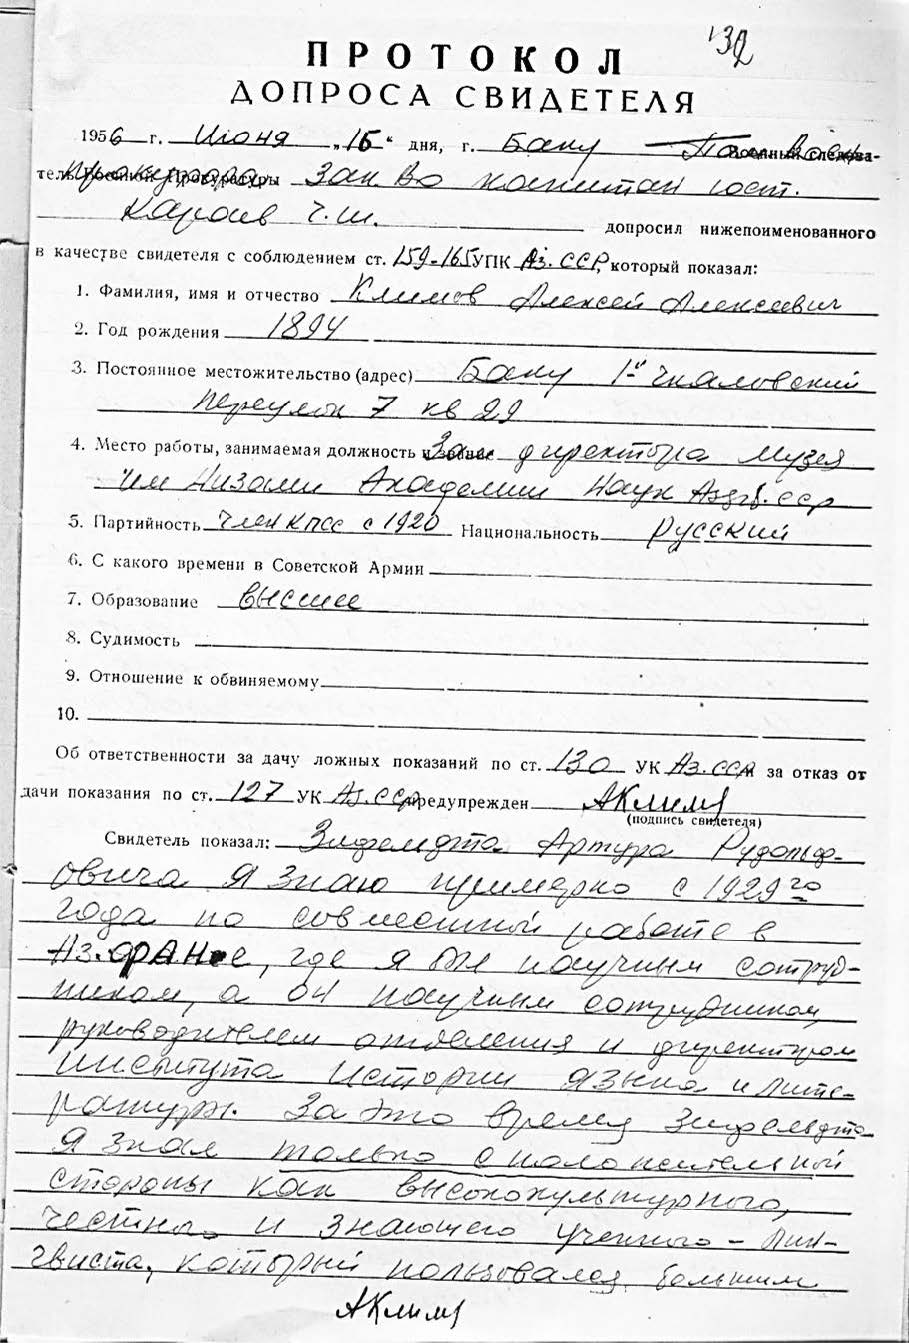 132
ПРОТОКОЛ
ДОПРОСА СВИДЕТЕЛЯ
1956 г. Июня „15“ дня, г. Баку Пом. Воен.
Прокурора ЗакВО капитан юст.
Караев Ч.Ш. допросил нижепоименованного
в качестве свидетеля с соблюдением ст. 159-165 УПК Аз.ССР, который показал:
1. Фамилия, имя и отчество Климов Алексей Алексеевич
2. Год рождения 1894
3. Постоянное местожительство (адрес) Баку 1-й Чкаловский
переулок 7 кв 29
4. Место работы, занимаемая должность Зам директора музея
им Низами Академии Наук Азерб.ССР
5. Партийность член КПСС с 1920 Национальность русский
6. С какого времени в Советской Армии
7. Образование высшее
8. Судимость
9. Отношение к обвиняемому
10.
Об ответственности за дачу ложных показаний по ст. 130 УК Аз.ССР и за отказ от
дачи показания по ст. 127 УК Аз.ССР предупрежден АКлимов
(подпись свидетеля)
Свидетель показал: Зифельдта Артура Рудольф-
овича я знаю примерно с 1929го
года по совместной работе в
Аз.ФАНе, где я был научным сотруд-
ником, а он научным сотрудником,
руководителем отделения и директором
института истории языка и лите-
ратуры. За это время Зифельдта
я знал только с положительной
стороны как высококультурного,
честного и знающего ученого – лин-
гвиста, который пользовался большим
АКлимов